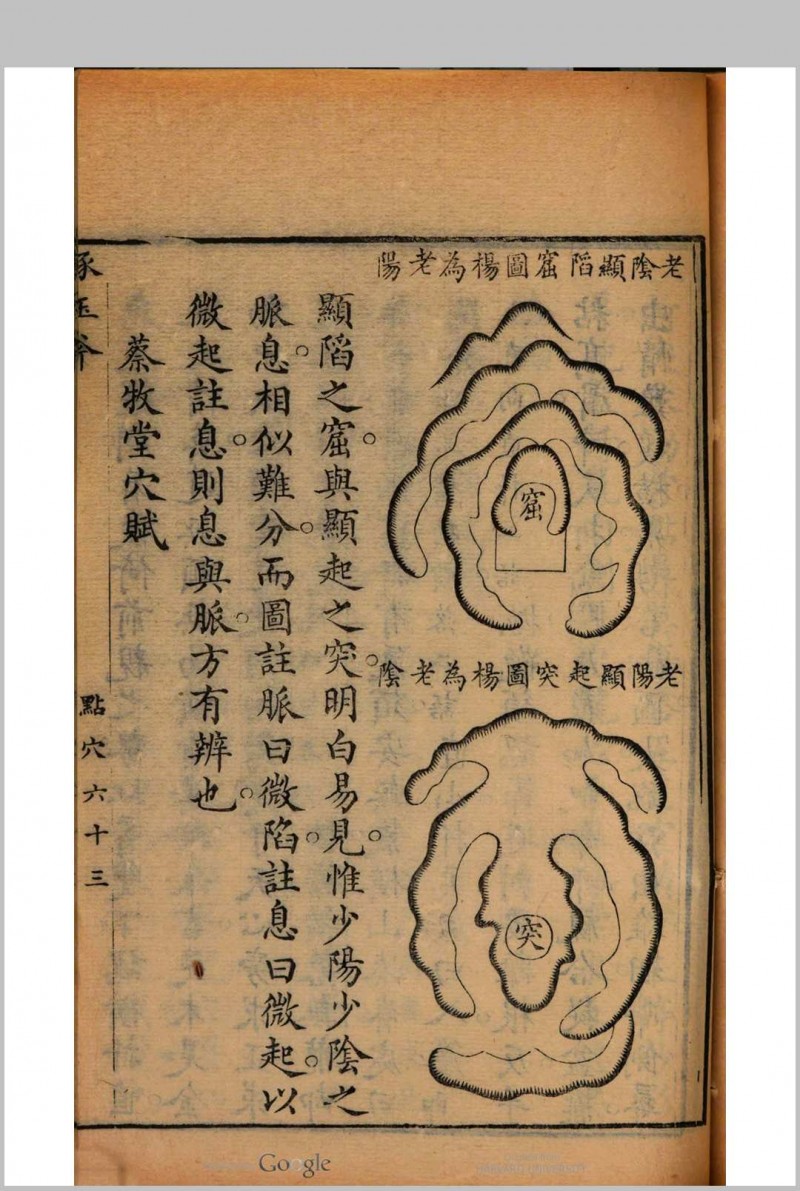 老陰顯陷窟圖楊為老陽
窟
老陽顯起突圖楊為老陰
突
顯陷之窟。與顯起之突。明白易見。惟少陽少陰之
脈息。相似難分。而圖註脈曰微陷。註息曰微起。以
微起註息。則息與脈。方有辨也。
蔡牧堂穴賦
琢玉斧
點穴六十三
Google